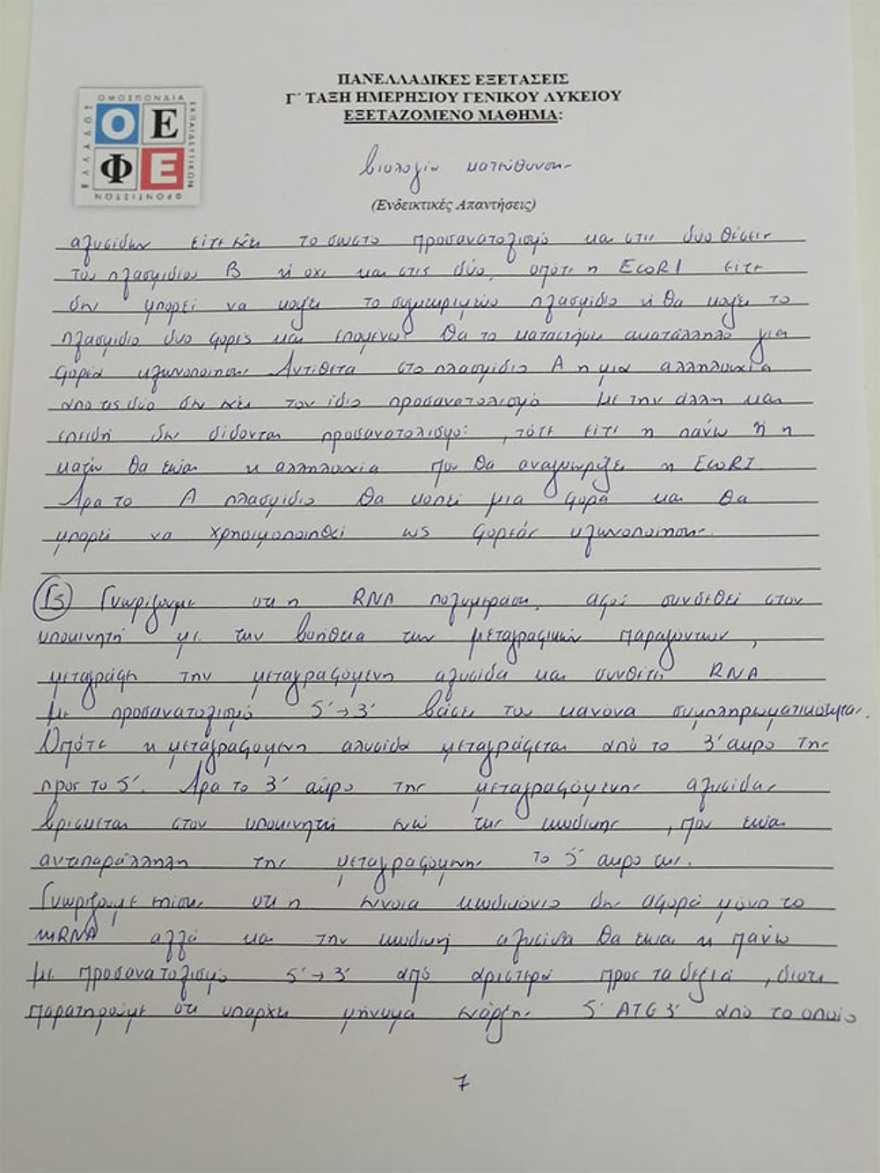 ΟΜΟΣΠΟΝΔΙΑ
ΕΚΠΑΙΔΕΥΤΙΚΩΝ
ΦΡΟΝΤΙΣΤΩΝ
ΕΛΛΑΔΟΣ
ΟΕΦΕ
ΠΑΝΕΛΛΑΔΙΚΕΣ ΕΞΕΤΑΣΕΙΣ
Γ΄ ΤΑΞΗ ΗΜΕΡΗΣΙΟΥ ΓΕΝΙΚΟΥ ΛΥΚΕΙΟΥ
ΕΞΕΤΑΖΟΜΕΝΟ ΜΑΘΗΜΑ:
Βιολογία κατεύθυνσης
(Ενδεικτικές Απαντήσεις)
αλυσίδων είτε έχει το σωστό προσανατολισμό και στις δύο θέσεις
του πλασμιδίου Β ή όχι και στις δύο, οπότε η EcoRI είτε
δεν μπορεί να κόψει το συγκεκριμένο πλασμίδιο ή θα κόψει το
πλασμίδιο δυο φορές και επομένως θα το καταστήσει ακατάλληλο για
φορέα κλωνοποίησης. Αντίθετα στο πλασμίδιο Α η μια αλληλουχία
από τις δύο δεν έχει τον ίδιο προσανατολισμό με την άλλη και
επειδή δεν δίδονται προσανατολισμοί, τότε είτε η πάνω ή η
κάτω θα είναι η αλληλουχία που θα αναγνωρίζει η EcoRI.
Άρα το Α πλασμίδιο θα κοπεί μια φορά και θα
μπορεί να χρησιμοποιηθεί ως φορέας κλωνοποίησης.
Γ3 Γνωρίζουμε ότι η RNA πολυμεράση, αφού συνδεθεί στον
υποκινητή με την βοήθεια των μεταγραφικών παραγόντων,
μεταγράφει την μεταγραφόμενη αλυσίδα και συνθέτει RNA
με προσανατολισμό 5'→3' βάσει του κανόνα συμπληρωματικότητας.
Οπότε η μεταγραφόμενη αλυσίδα μεταγράφεται από το 3' άκρο της
προς το 5'. Άρα το 3' άκρο της μεταγραφόμενης αλυσίδας
βρίσκεται στον υποκινητή ενώ της κωδικής, που είναι
αντιπαράλληλη της μεταγραφόμενης το 5' άκρο της.
Γνωρίζουμε επίσης ότι η έννοια κωδικόνιο δεν αφορά μόνο το
mRNA αλλά και την κωδική αλυσίδα θα είναι η πάνω
με προσανατολισμό 5'→3' από αριστερά προς τα δεξιά, διότι
παρατηρούμε ότι υπάρχει μήνυμα έναρξης 5' ATG 3' από το οποίο
7